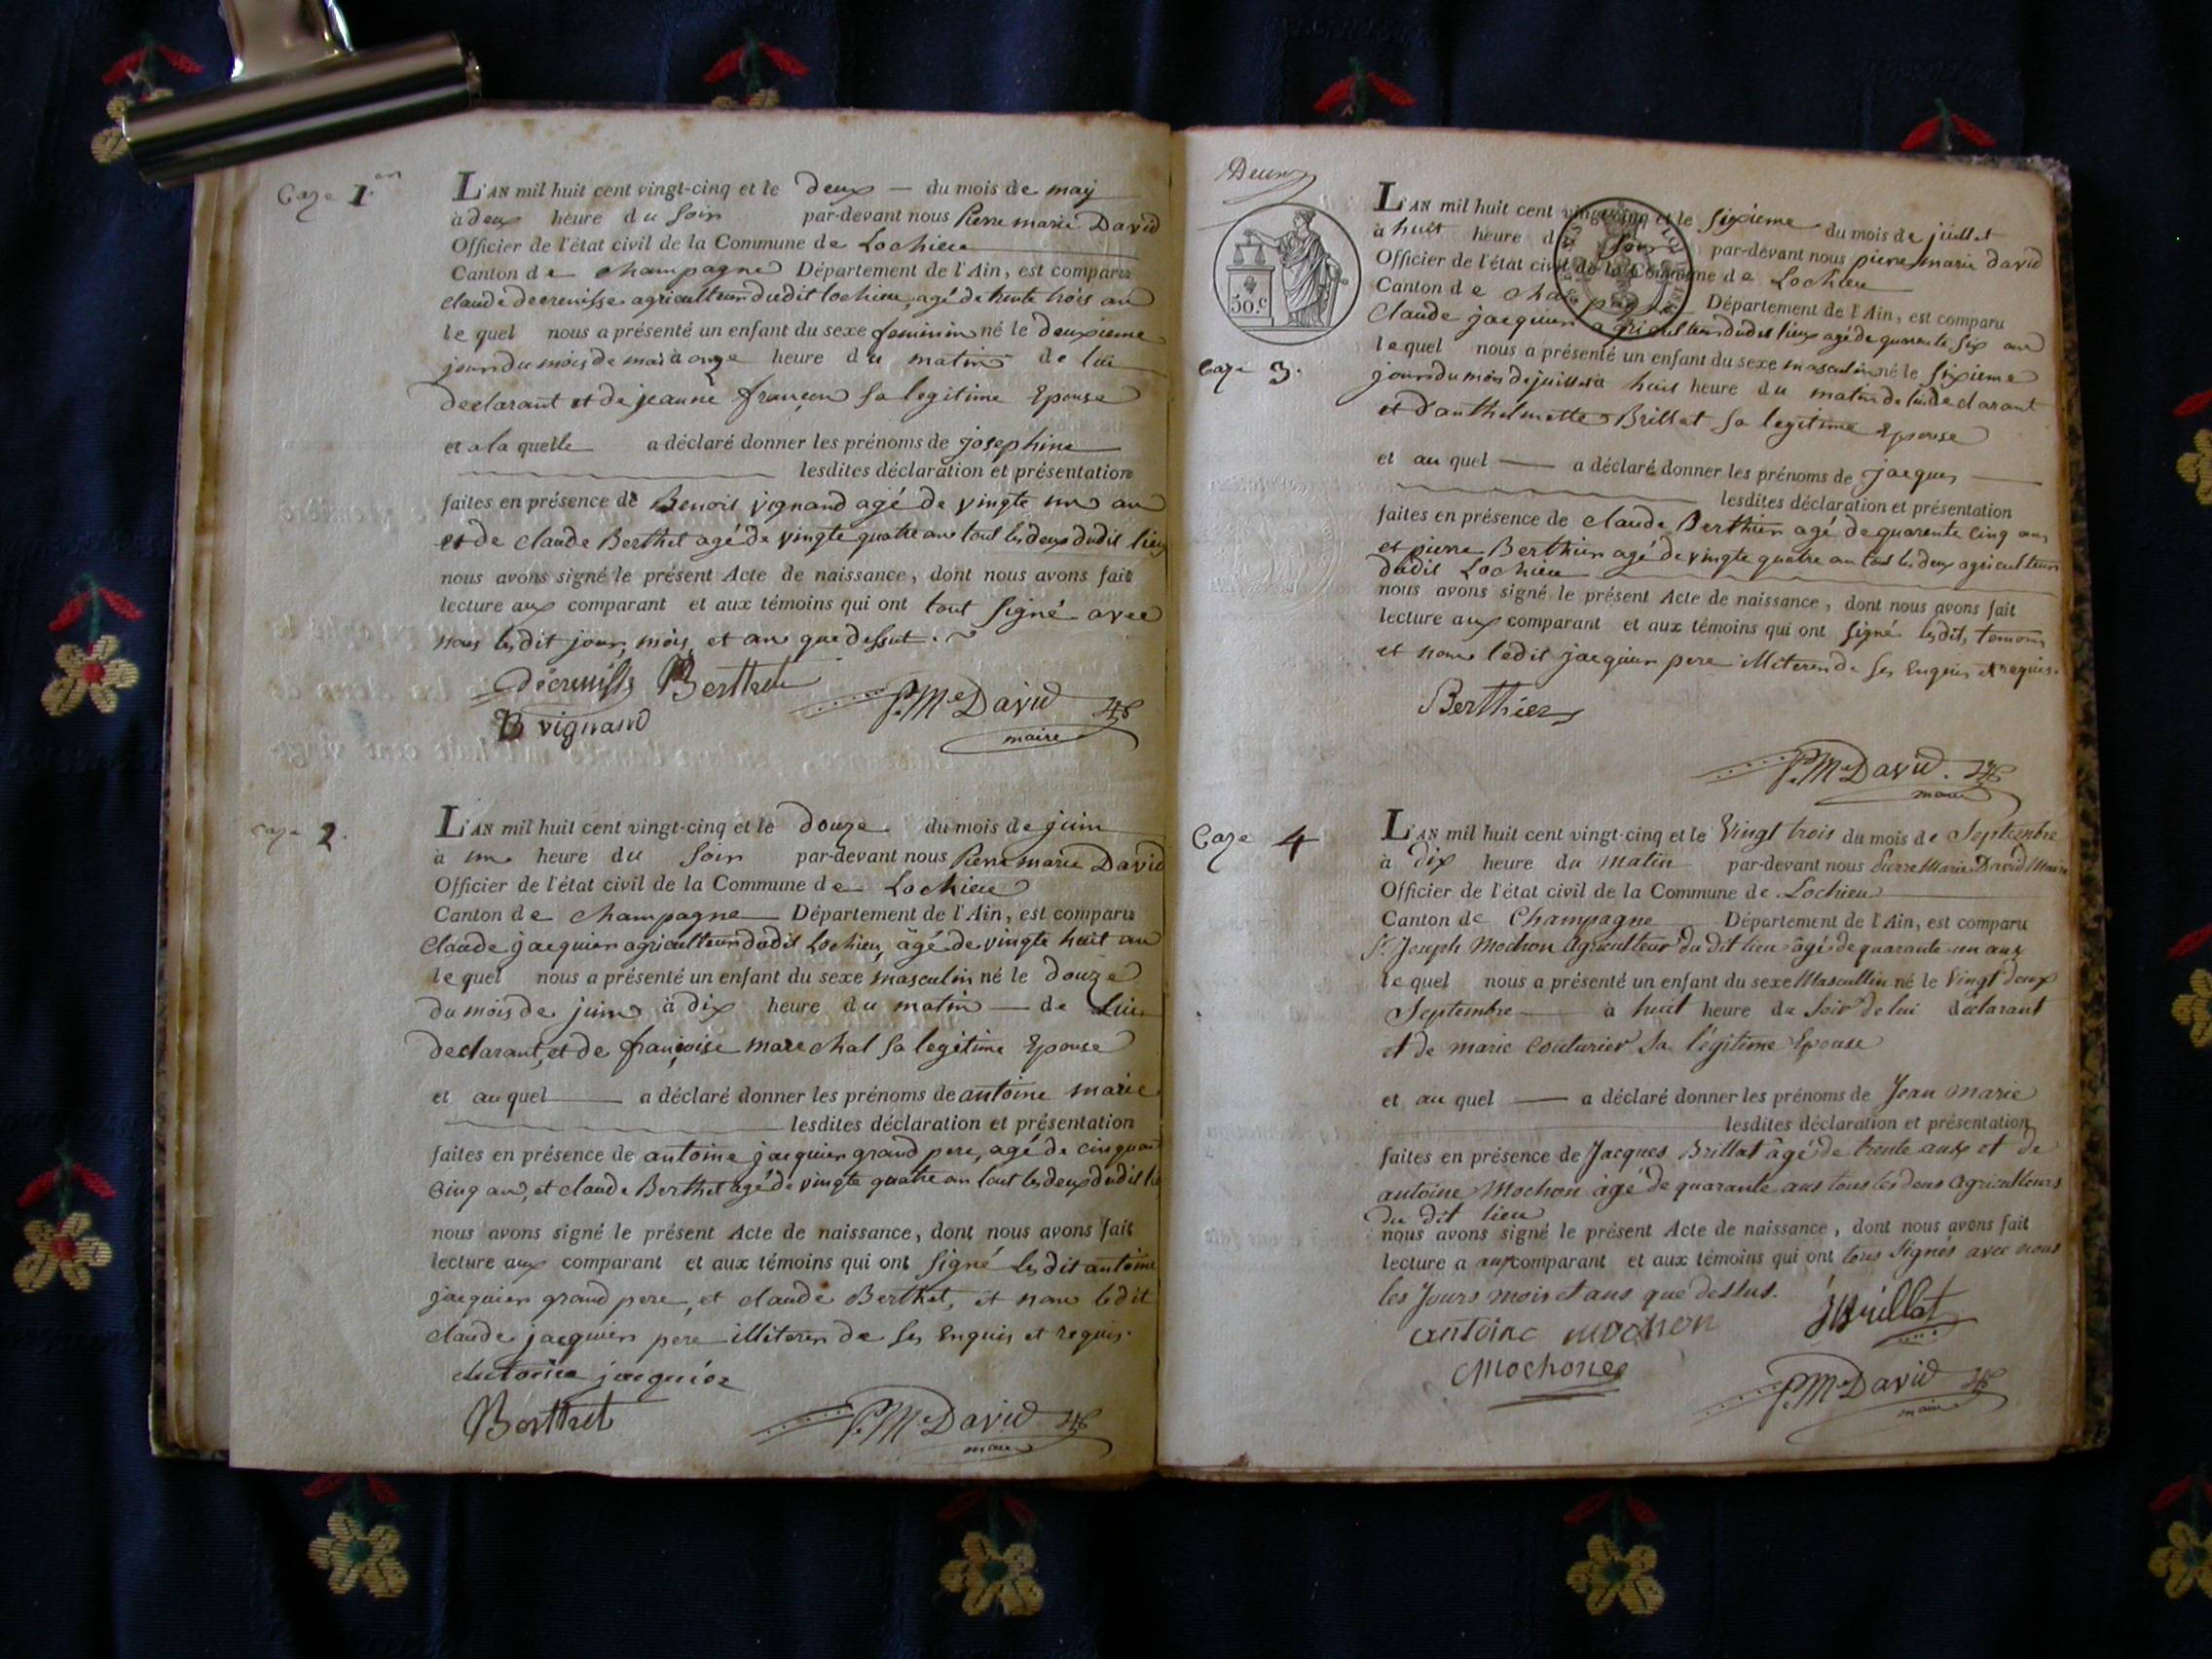 Caze 1.
L'AN mil huit cent vingt-cinq et le deux du mois de maÿ
à deux heure du soir par-devant nous Pierre marie David
Officier de l'état civil de la Commune de Lochieu
Canton de champagne Département de l'Ain, est comparu
claude decrenisse agriculteur dudit lochieu, agé de trente trois an
le quel nous a présenté un enfant du sexe feminin né le deuxieme
jour du mois de mai à onze heure du matin de lui
declarant et de jeanne françon sa legitime Epouse
et a la quelle a déclaré donner les prénoms de josephine
lesdites déclaration et présentation
faites en présence de Benoit vignand agé de vingte un an
et de claude Berthet agé de vingte quatre an tout les deux dudit lieu
nous avons signé le présent Acte de naissance, dont nous avons fait
lecture aux comparant et aux témoins qui ont tout signé avec
nous lesdit jour, mois et an que dessut.
décrenisse Berthet
B vignand
P. Me David
maire
Caze 2.
L'AN mil huit cent vingt-cinq et le douze du mois de juin
à une heure du soir par-devant nous Pierre marie David
Officier de l'état civil de la Commune de Lochieu
Canton de champagne Département de l'Ain, est comparu
claude jacquier agriculteur dudit Lochieu, âgé de vingte huit an
le quel nous a présenté un enfant du sexe masculin né le douze
du mois de juin à dix heure du matin de Lui
declarant, et de françoise marechal sa legitime Epouse
et au quel a déclaré donner les prénoms de antoine marie
lesdites déclaration et présentation
faites en présence de antoine jacquier grand pere, agé de cinquan
cinq an, et claude Berthet agé de vingte quatre an tout les deux dudit li
nous avons signé le présent Acte de naissance, dont nous avons fait
lecture aux comparant et aux témoins qui ont signé lesdit antoine
jacquier grand pere, et claude Berthet, et non ledit
claude jacquier pere illiteren de ses Enquis et requis.
Antoine jacquier
Berthet
P. Me David
maire
Deux
50.c
L'AN mil huit cent vingt-cinq et le sixieme du mois de juillet
à huit heure d soir par-devant nous pierre marie david
Officier de l'état civil de la Commune de Lochieu
Canton de champagne Département de l'Ain, est comparu
Claude jacquier agriculteur dudit lieux agé de quarente six an
Caze 3.
le quel nous a présenté un enfant du sexe masculin né le sixieme
jour du mois de juillet à huit heure du matin de lui declarant
et d'anthelmette Brillat sa legitime Epouse
et au quel a déclaré donner les prénoms de jacques
lesdites déclaration et présentation
faites en présence de claude Berthier agé de quarente cinq an,
et pierre Berthier agé de vingte quatre an tout les deux agriculteur
dudit Lochieu
nous avons signé le présent Acte de naissance, dont nous avons fait
lecture aux comparant et aux témoins qui ont signé lesdits temoins
et non ledit jacquier pere illiteren de ses Enquis et requis.
Berthier
P. Me David.
maire
Caze 4
L'AN mil huit cent vingt-cinq et le Vingt trois du mois de Septembre
à dix heure du matin par-devant nous Pierre Marie David Maire
Officier de l'état civil de la Commune de Lochieu
Canton de Champagne Département de l'Ain, est comparu
Sr. Joseph Mochon Agriculteur du dit lieu âgé de quarante un ans
le quel nous a présenté un enfant du sexe Mascullin né le Vingt deux
Septembre à huit heure du Soir de lui déclarant
et de marie couturier sa légitime Epouse
et au quel a déclaré donner les prénoms de Jean marie
lesdites déclaration et présentation
faites en présence de Jacques Brillat âgé de trente ans et de
antoine Mochon âgé de quarante ans tous les deux Agriculteurs
du dit lieu
nous avons signé le présent Acte de naissance, dont nous avons fait
lecture a aux comparant et aux témoins qui ont tous Signés avec nous
les Jours mois et ans que dessus.
antoine mochon JBrillat
Mochon
P. Me David
maire